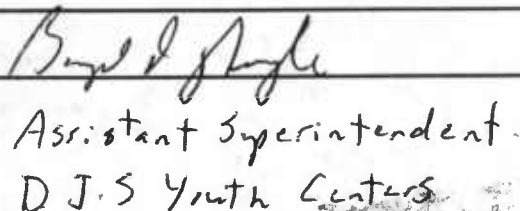 Assistant Superintendent
D J.S Youth Centers